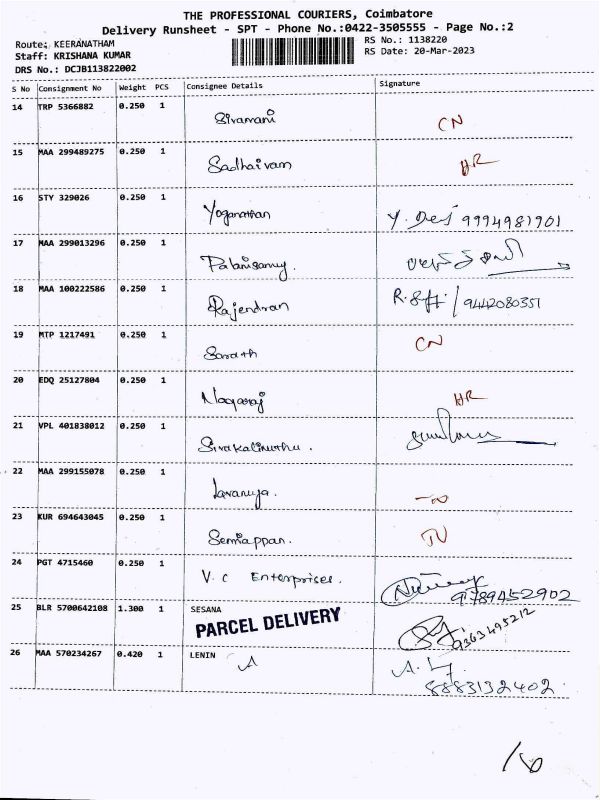 THE PROFESSIONAL COURIERS, Coimbatore
Delivery Runsheet - SPT - Phone No.:0422-3505555 - Page No.:2
Route: KEERANATHAM
RS No.: 1138220
Staff: KRISHANA KUMAR
RS Date: 20-Mar-2023
DRS No.: DCJB113822002
S No Consignment No Weight PCS Consignee Details Signature
14 TRP 5366882 0.250 1 Sivamani CN
15 MAA 299489275 0.250 1 Sadhaivam HR
16 STY 329026 0.250 1 Yoganathan Y. Dev 9994981901
17 MAA 299013296 0.250 1 Palanisamy.
18 MAA 100222586 0.250 1 Rajendran 9442080351
19 MTP 1217491 0.250 1 Sarath CN
20 EDQ 25127804 0.250 1 Nagaraj HR
21 VPL 401838012 0.250 1 Sivakalimuthu.
22 MAA 299155078 0.250 1 Lavanya.
23 KUR 694643045 0.250 1 Sennappan.
24 PGT 4715460 0.250 1 V. C Enterprises. 9789452902
25 BLR 5700642108 1.300 1 SESANA
PARCEL DELIVERY 9363495212
26 MAA 570234267 0.420 1 LENIN
A
8883132402.